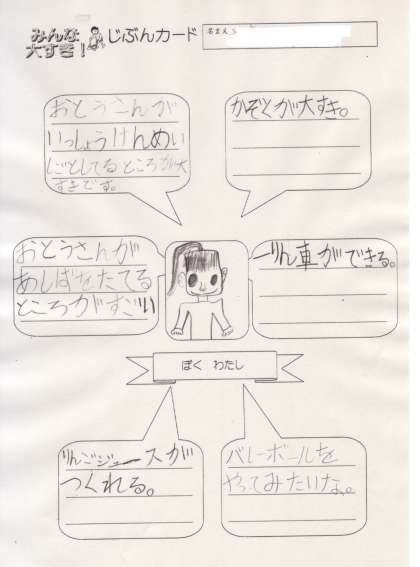 みんな
大すき!
じぶんカード
名まえ
おとうさんが
いっしょうけんめい
しごとしてるところが大
すきです。
かぞくが大すき。
おとうさんが
あしばをたてる
ところがすごい
一りん車ができる。
ぼく わたし
りんごジュースが
つくれる。
バレーボールを
やってみたいな。